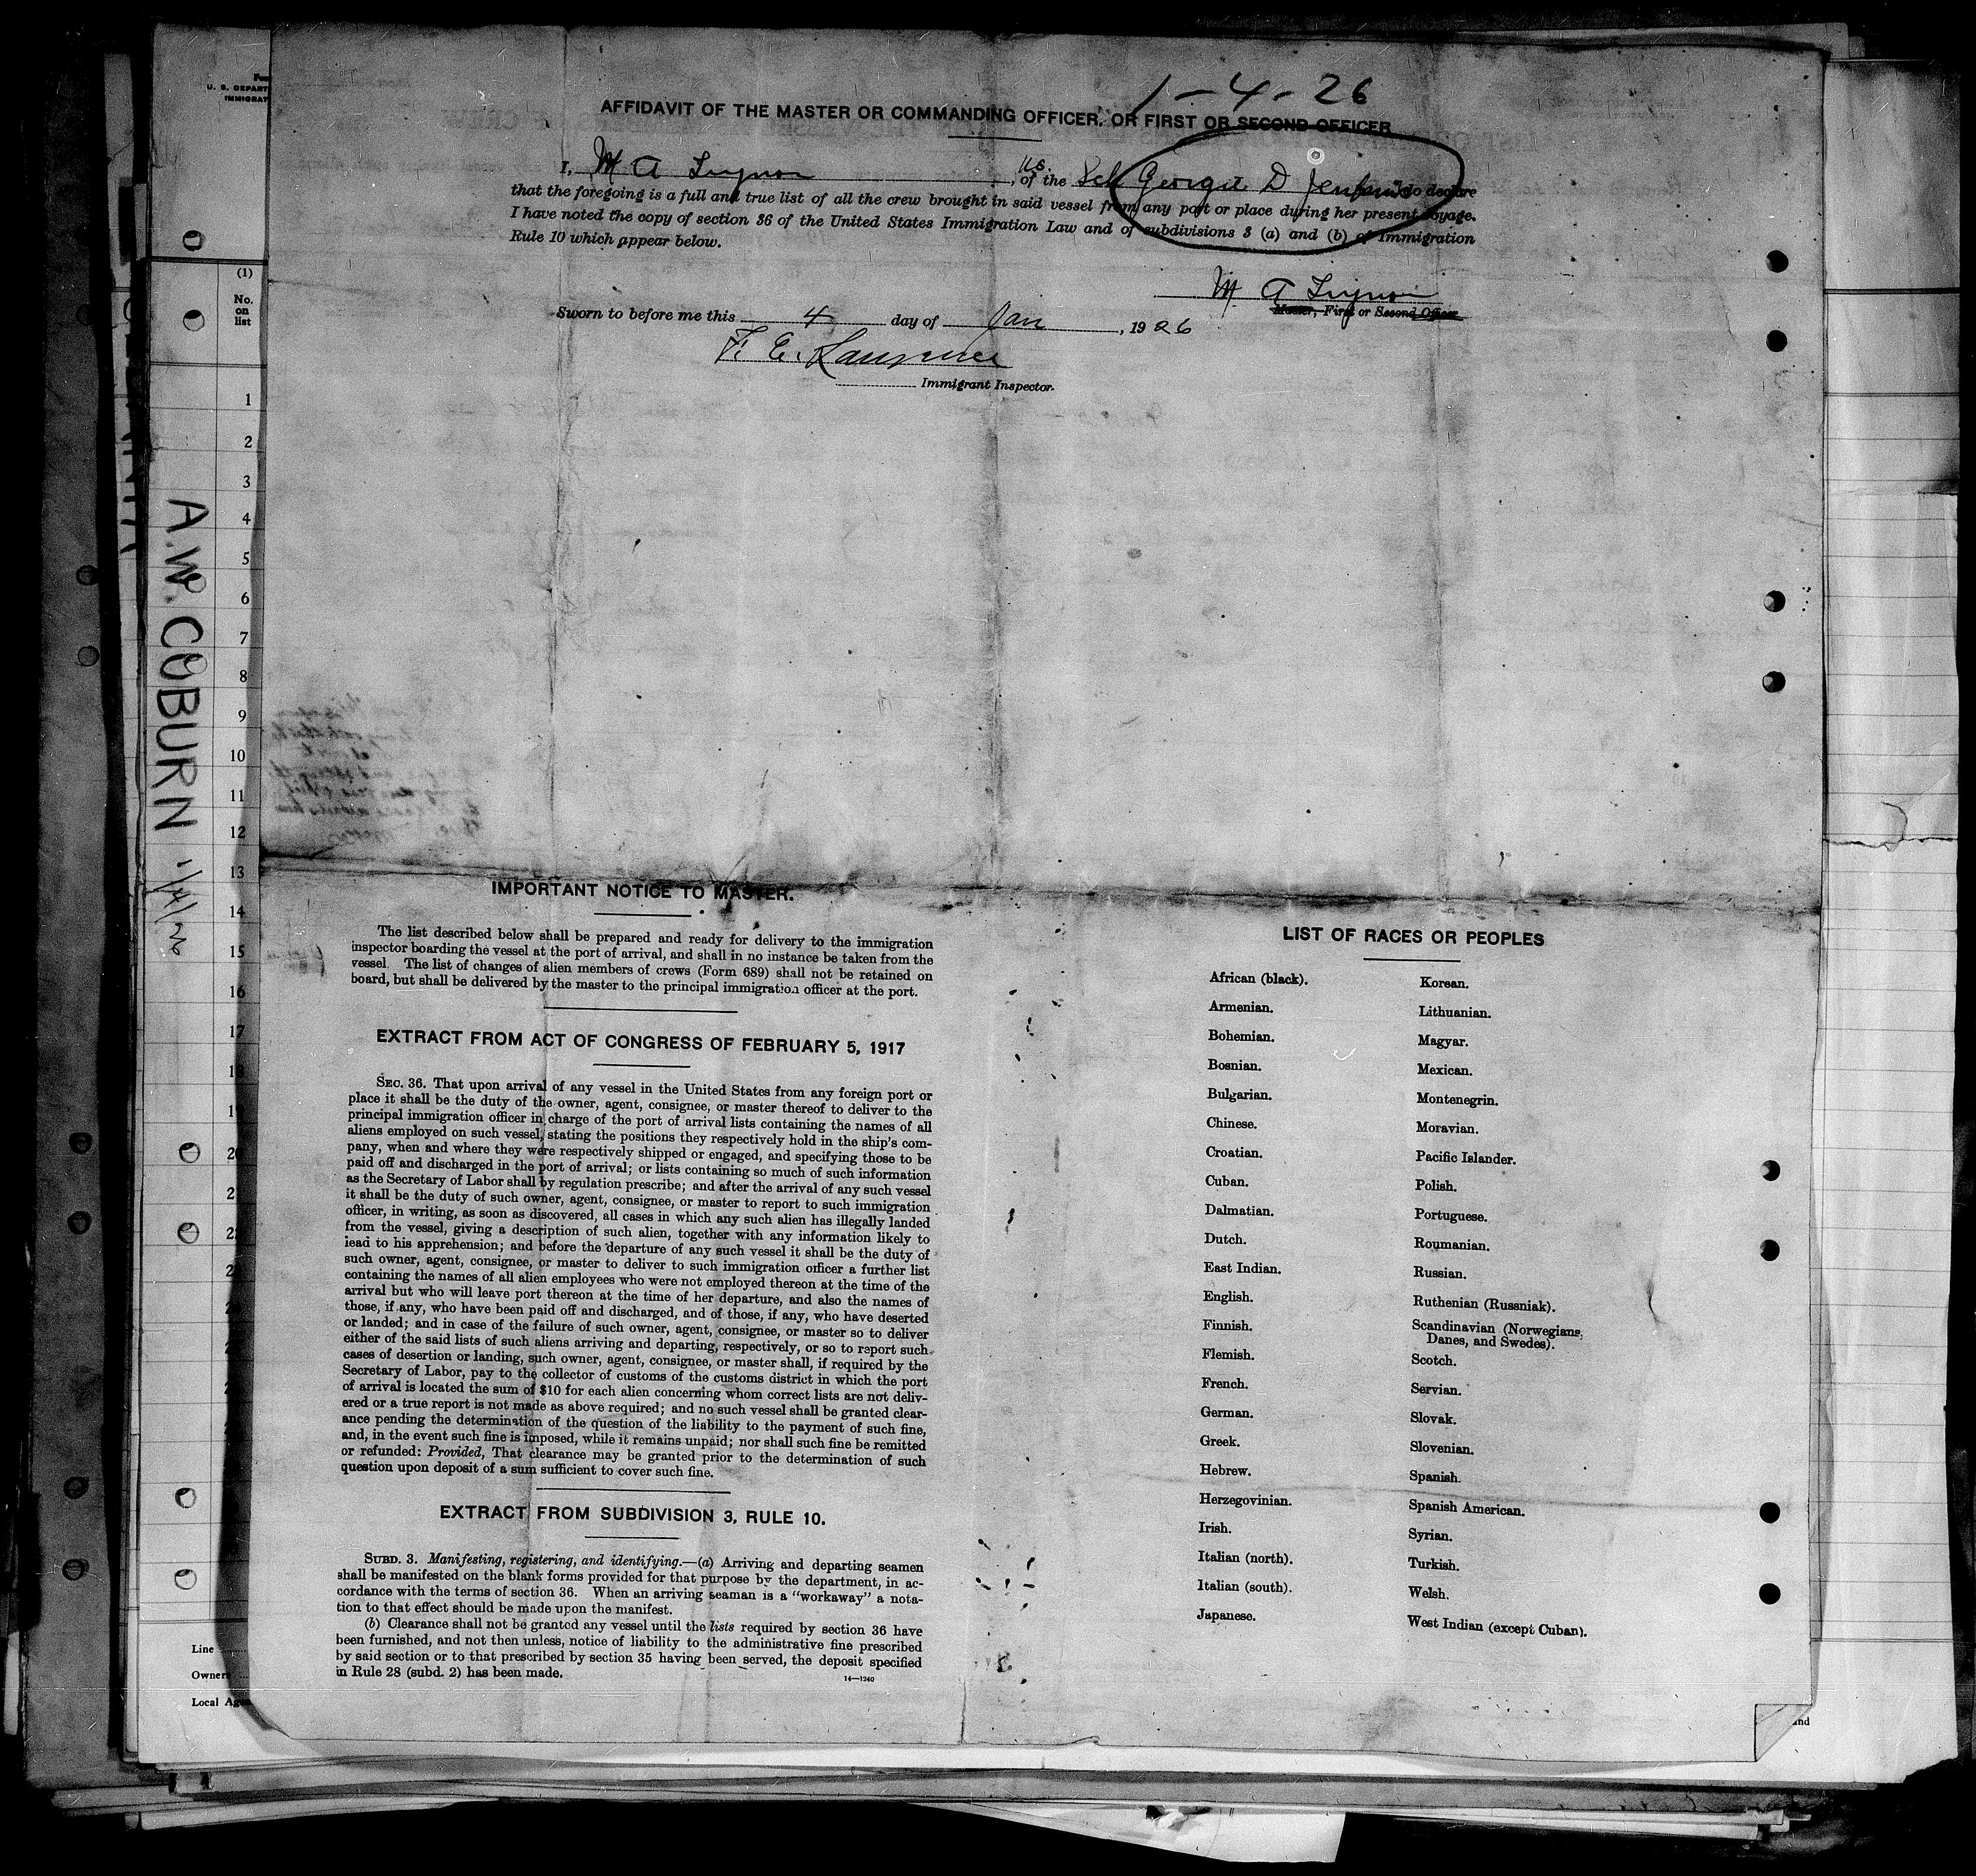 1-4-26
AFFIDAVIT OF THE MASTER OR COMMANDING OFFICER, OR FIRST OR SECOND OFFICER
I, M A , of the U.S. Sch Georgie D Jenkins do declare
that the foregoing is a full and true list of all the crew brought in said vessel from any port or place during her present voyage.
I have noted the copy of section 36 of the United States Immigration Law and of subdivisions 3 (a) and (b) of Immigration
Rule 10 which appear below.
M A
Master, First or Second Officer.
Sworn to before me this 4 day of Jan, 1926
F. E. Lawrence
Immigrant Inspector.
U. S. DEPART
IMMIGRAT
(1)
No.
on
list
1
2
3
4
5
6
7
8
9
10
11
12
13
14
15
16
17
18
19
20
A.W. COBURN 1/4/26
Line
Owner
Local Age
IMPORTANT NOTICE TO MASTER.
The list described below shall be prepared and ready for delivery to the immigration
inspector boarding the vessel at the port of arrival, and shall in no instance be taken from the
vessel. The list of changes of alien members of crews (Form 689) shall not be retained on
board, but shall be delivered by the master to the principal immigration officer at the port.
EXTRACT FROM ACT OF CONGRESS OF FEBRUARY 5, 1917
SEC. 36. That upon arrival of any vessel in the United States from any foreign port or
place it shall be the duty of the owner, agent, consignee, or master thereof to deliver to the
principal immigration officer in charge of the port of arrival lists containing the names of all
aliens employed on such vessel, stating the positions they respectively hold in the ship's com-
pany, when and where they were respectively shipped or engaged, and specifying those to be
paid off and discharged in the port of arrival; or lists containing so much of such information
as the Secretary of Labor shall by regulation prescribe; and after the arrival of any such vessel
it shall be the duty of such owner, agent, consignee, or master to report to such immigration
officer, in writing, as soon as discovered, all cases in which any such alien has illegally landed
from the vessel, giving a description of such alien, together with any information likely to
lead to his apprehension; and before the departure of any such vessel it shall be the duty of
such owner, agent, consignee, or master to deliver to such immigration officer a further list
containing the names of all alien employees who were not employed thereon at the time of the
arrival but who will leave port thereon at the time of her departure, and also the names of
those, if any, who have been paid off and discharged, and of those, if any, who have deserted
or landed; and in case of the failure of such owner, agent, consignee, or master so to deliver
either of the said lists of such aliens arriving and departing, respectively, or so to report such
cases of desertion or landing, such owner, agent, consignee, or master shall, if required by the
Secretary of Labor, pay to the collector of customs of the customs district in which the port
of arrival is located the sum of $10 for each alien concerning whom correct lists are not deliv-
ered or a true report is not made as above required; and no such vessel shall be granted clear-
ance pending the determination of the question of the liability to the payment of such fine,
and, in the event such fine is imposed, while it remains unpaid; nor shall such fine be remitted
or refunded: Provided, That clearance may be granted prior to the determination of such
question upon deposit of a sum sufficient to cover such fine.
EXTRACT FROM SUBDIVISION 3, RULE 10.
SUBD. 3. Manifesting, registering, and identifying.—(a) Arriving and departing seamen
shall be manifested on the blank forms provided for that purpose by the department, in ac-
cordance with the terms of section 36. When an arriving seaman is a "workaway" a nota-
tion to that effect should be made upon the manifest.
(b) Clearance shall not be granted any vessel until the lists required by section 36 have
been furnished, and not then unless, notice of liability to the administrative fine prescribed
by said section or to that prescribed by section 35 having been served, the deposit specified
in Rule 28 (subd. 2) has been made.
14—1240
LIST OF RACES OR PEOPLES
African (black).
Armenian.
Bohemian.
Bosnian.
Bulgarian.
Chinese.
Croatian.
Cuban.
Dalmatian.
Dutch.
East Indian.
English.
Finnish.
Flemish.
French.
German.
Greek.
Hebrew.
Herzegovinian.
Irish.
Italian (north).
Italian (south).
Japanese.
Korean.
Lithuanian.
Magyar.
Mexican.
Montenegrin.
Moravian.
Pacific Islander.
Polish.
Portuguese.
Roumanian.
Russian.
Ruthenian (Russniak).
Scandinavian (Norwegians,
Danes, and Swedes).
Scotch.
Servian.
Slovak.
Slovenian.
Spanish.
Spanish American.
Syrian.
Turkish.
Welsh.
West Indian (except Cuban).
and